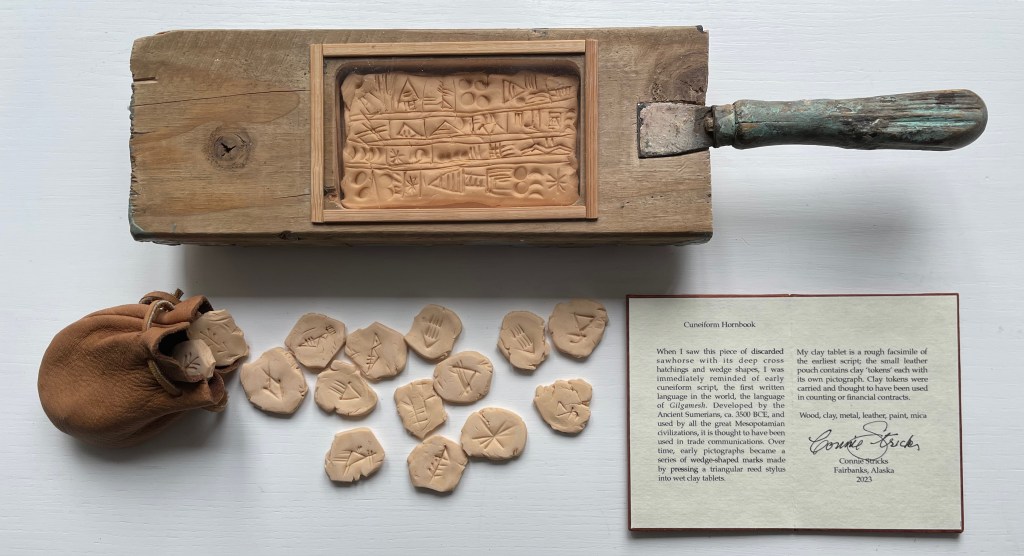 Cuneiform Hornbook
When I saw this piece of discarded
sawhorse with its deep cross
hatchings and wedge shapes, I was
immediately reminded of early
cuneiform script, the first written
language in the world, the language
of Gilgamesh. Developed by the
Ancient Sumerians, ca. 3500 BCE, and
used by all the great Mesopotamian
civilizations, it is thought to have been
used in trade communications. Over
time, early pictographs became a
series of wedge-shaped marks made
by pressing a triangular reed stylus
into wet clay tablets.
My clay tablet is a rough facsimile of
the earliest script; the small leather
pouch contains clay 'tokens' each with
its own pictograph. Clay tokens were
carried and thought to have been used
in counting or financial contracts.
Wood, clay, metal, leather, paint, mica
Connie Stricks
Connie Stricks
Fairbanks, Alaska
2023